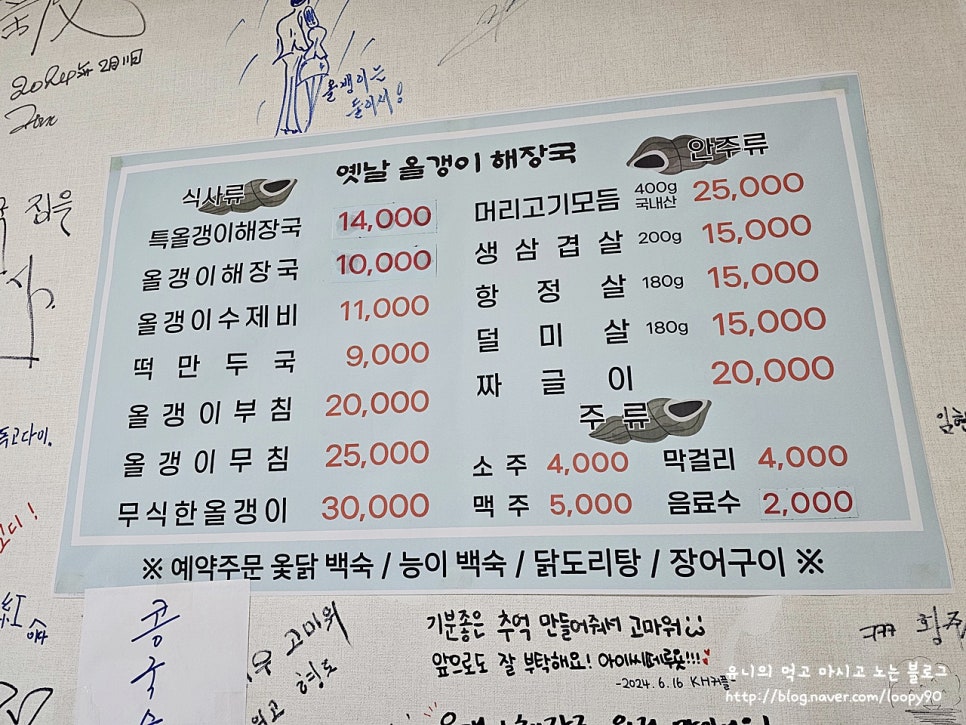 올갱이는
옛날 올갱이 해장국
식사류
특올갱이해장국 14,000
올갱이해장국 10,000
올갱이수제비 11,000
떡만두국 9,000
올갱이부침 20,000
올갱이무침 25,000
무식한올갱이 30,000
안주류
머리고기모듬 400g 국내산 25,000
생삼겹살 200g 15,000
항정살 180g 15,000
덜미살 180g 15,000
짜글이 20,000
주류
소주 4,000 막걸리 4,000
맥주 5,000 음료수 2,000
※ 예약주문 옻닭 백숙 / 능이 백숙 / 닭도리탕 / 장어구이 ※
콩
국
고마워
기분좋은 추억 만들어줘서 고마워
앞으로도 잘 부탁해요! 아이씨떼루욧!!!
-2024.6.16 KH커플-
유니의 먹고 마시고 노는 블로그
http://blog.naver.com/loopy90